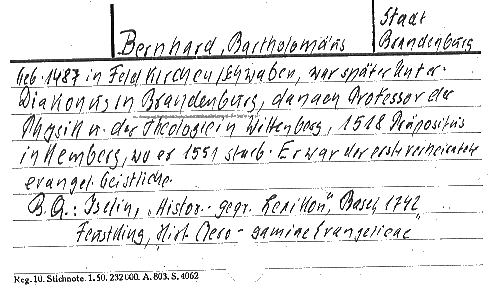 Bernhard, Bartholomäus
Stadt
Brandenburg
Geb. 1487 in Feldkirchen / Schwaben, war später Unter-
Diakonus in Brandenburg, danach Professor der
Physik u. der Theologie in Wittenberg, 1518 Präpositus
in Kemberg, wo er 1551 starb. Er war der erste verheiratete
evangel. Geistliche.
B.Q.: Iselin, „Histor.-gegr. Lexikon", Basel, 1742
„Hist. Evangelicae"
Reg. 10. Stichnote. 1. 50. 232 000. A. 803. S. 4062